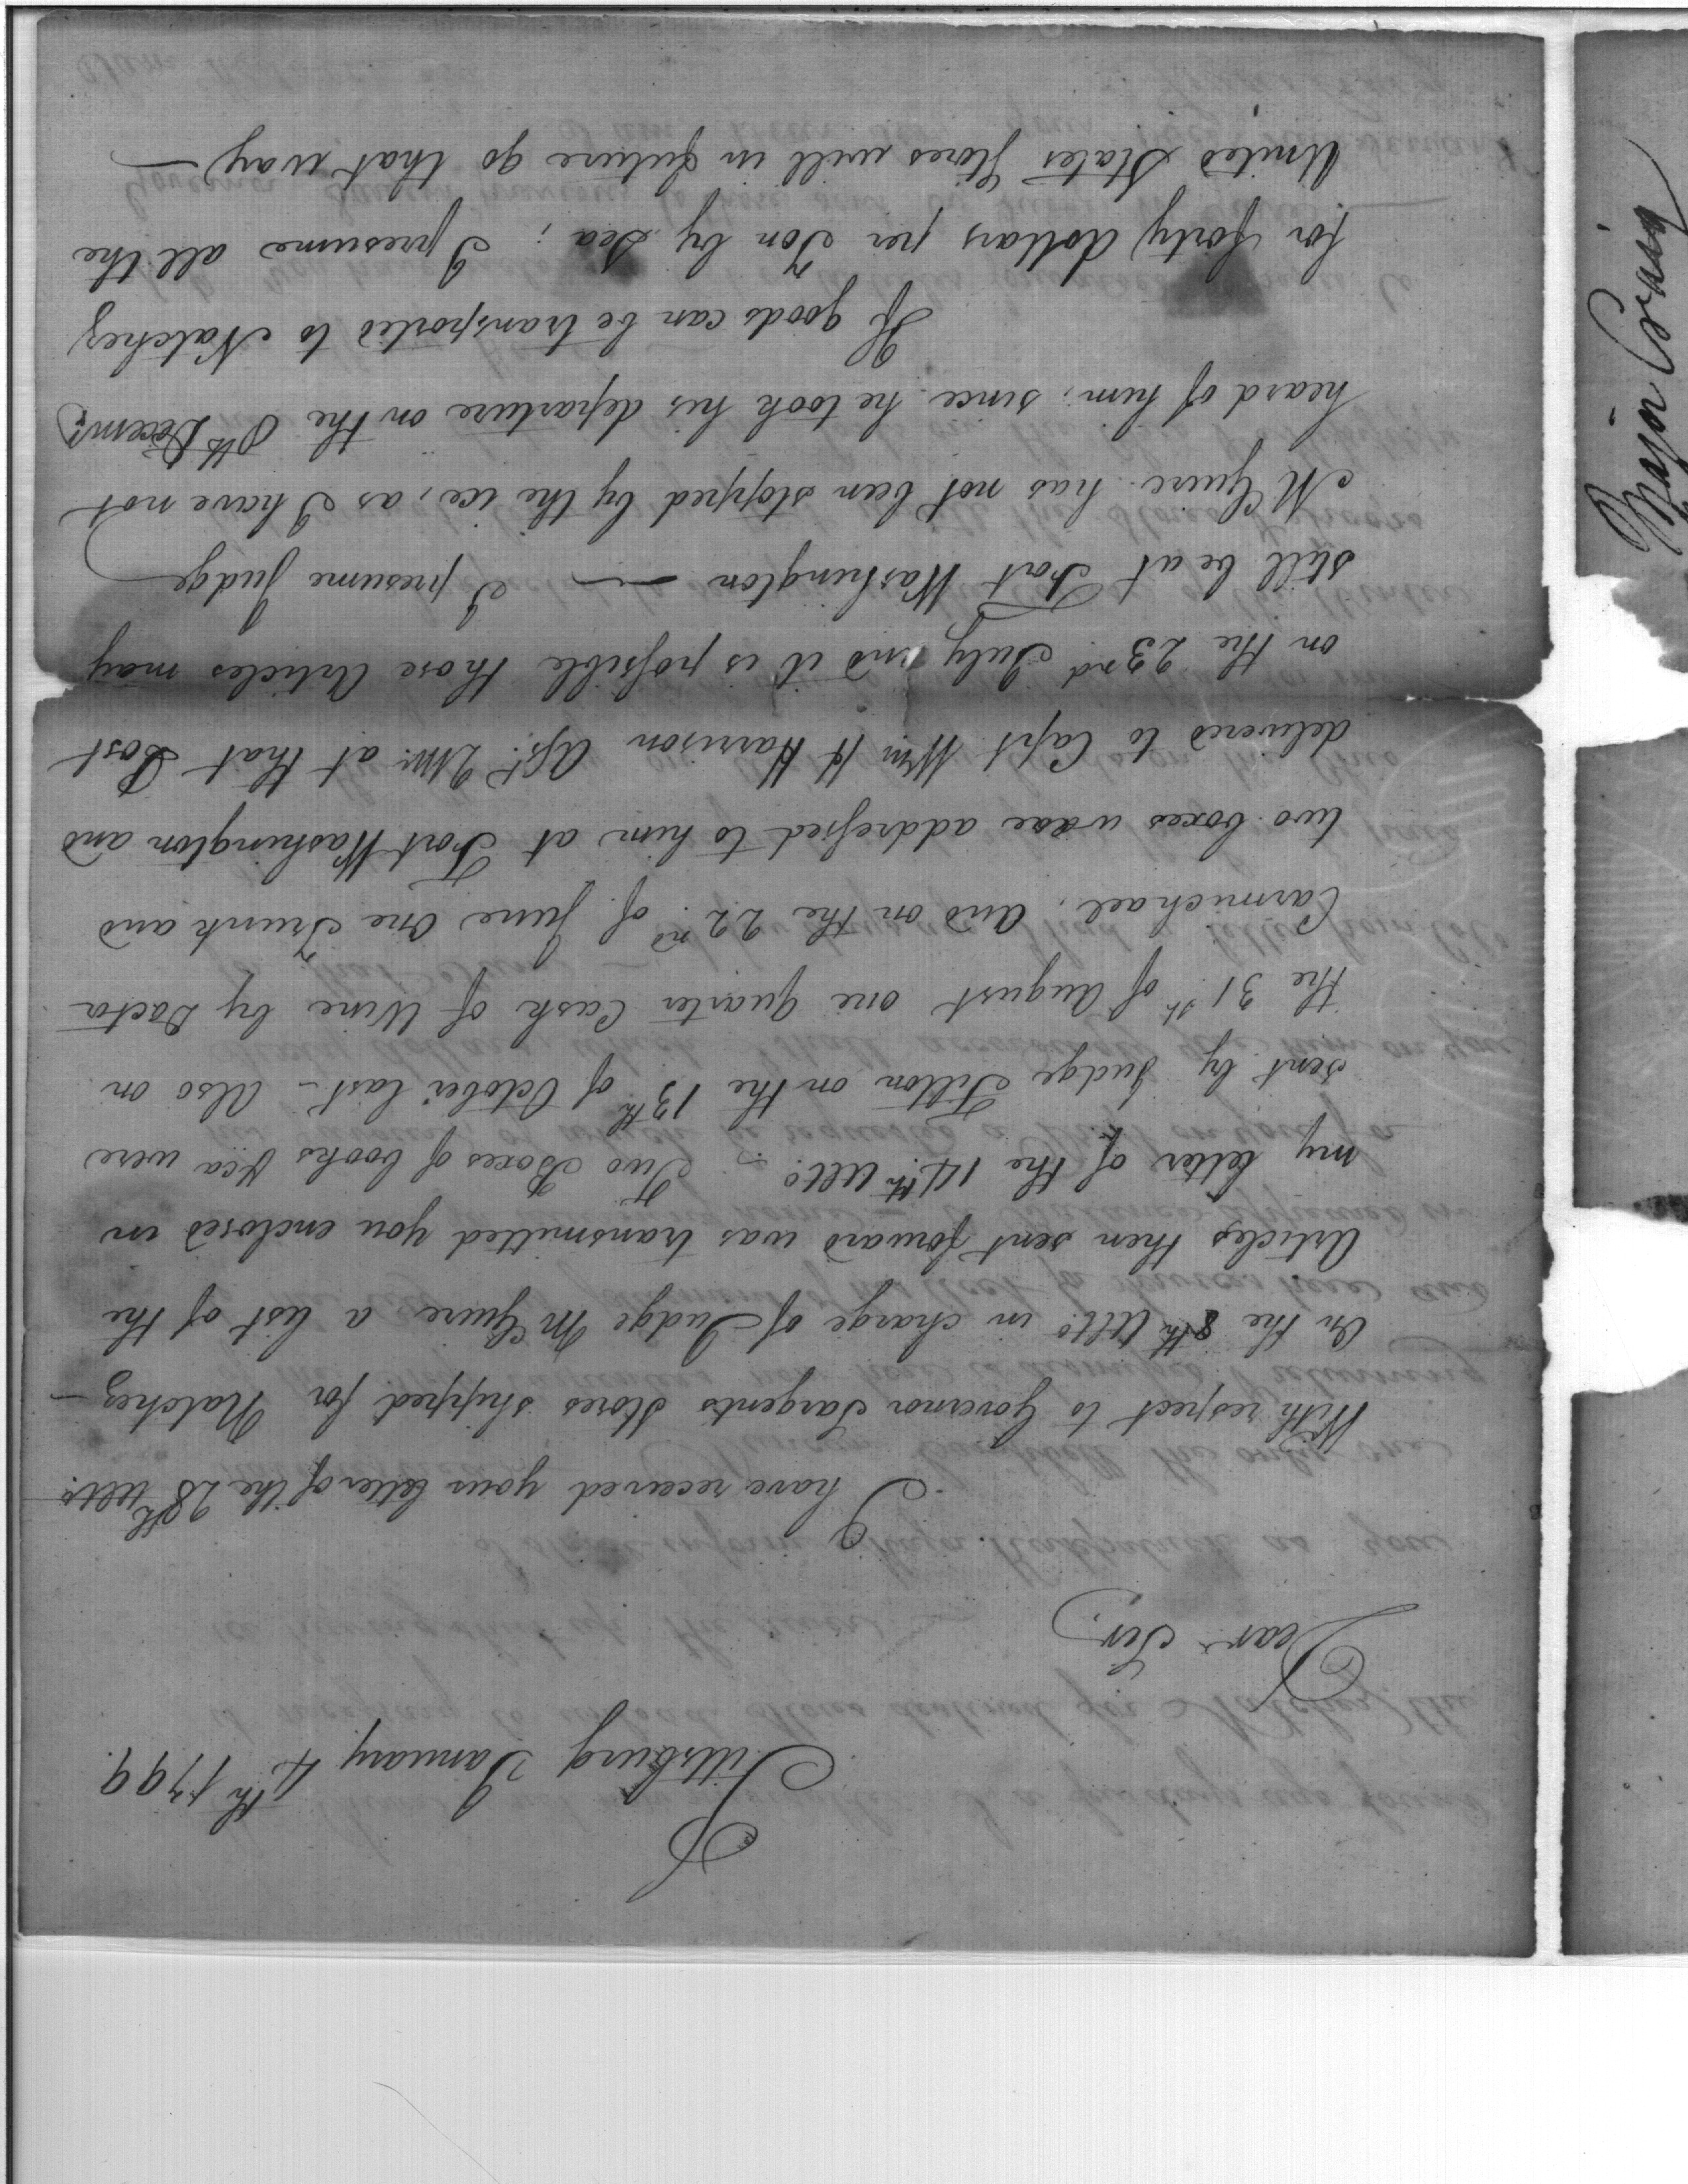 Pittsburg January 4th 1799.
Dear Sir,
I have received your letter of the 28th Ulto.
With respect to Governor Sargents Stores shipped for Natchez —
On the 8th Ulto in charge of Judge McGuire a list of the
Articles then sent forward was transmitted you enclosed in
my letter of the 14th Ulto — Two Boxes of books &ca were
sent by Judge Tilton on the 13th of October last — Also on
the 31st of August one quarter Cask of Wine by Doctor
Carmichael, And on the 22nd of June One Trunk and
two boxes were addressed to him at Fort Washington and
delivered to Capt Wm H Harrison Asst QMr. at that Post
on the 23rd July and it is possible those Articles may
still be at Fort Washington — I presume Judge
McGuire has not been stopped by the ice, as I have not
heard of him, since he took his departure on the 8th Decemr.
If goods can be transported to Natchez
for forty dollars per Ton by Sea; I presume all the
United States Stores will in future go that way —
Major Craig